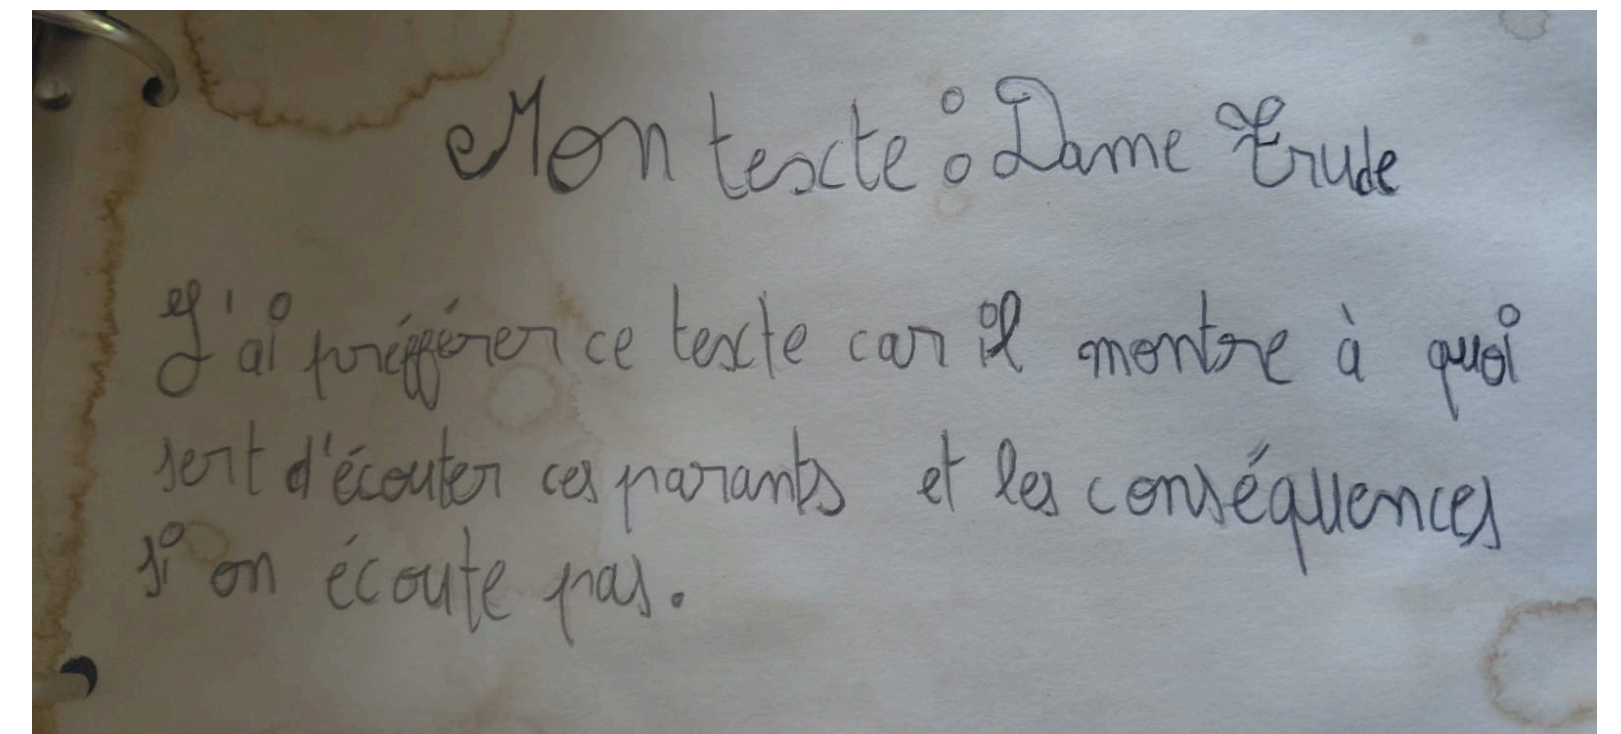 Mon texte : Dame Trude
J'ai préfférer ce texte car il montre à quoi
sert d'écouter ces parants et les conséquences
si on écoute pas.